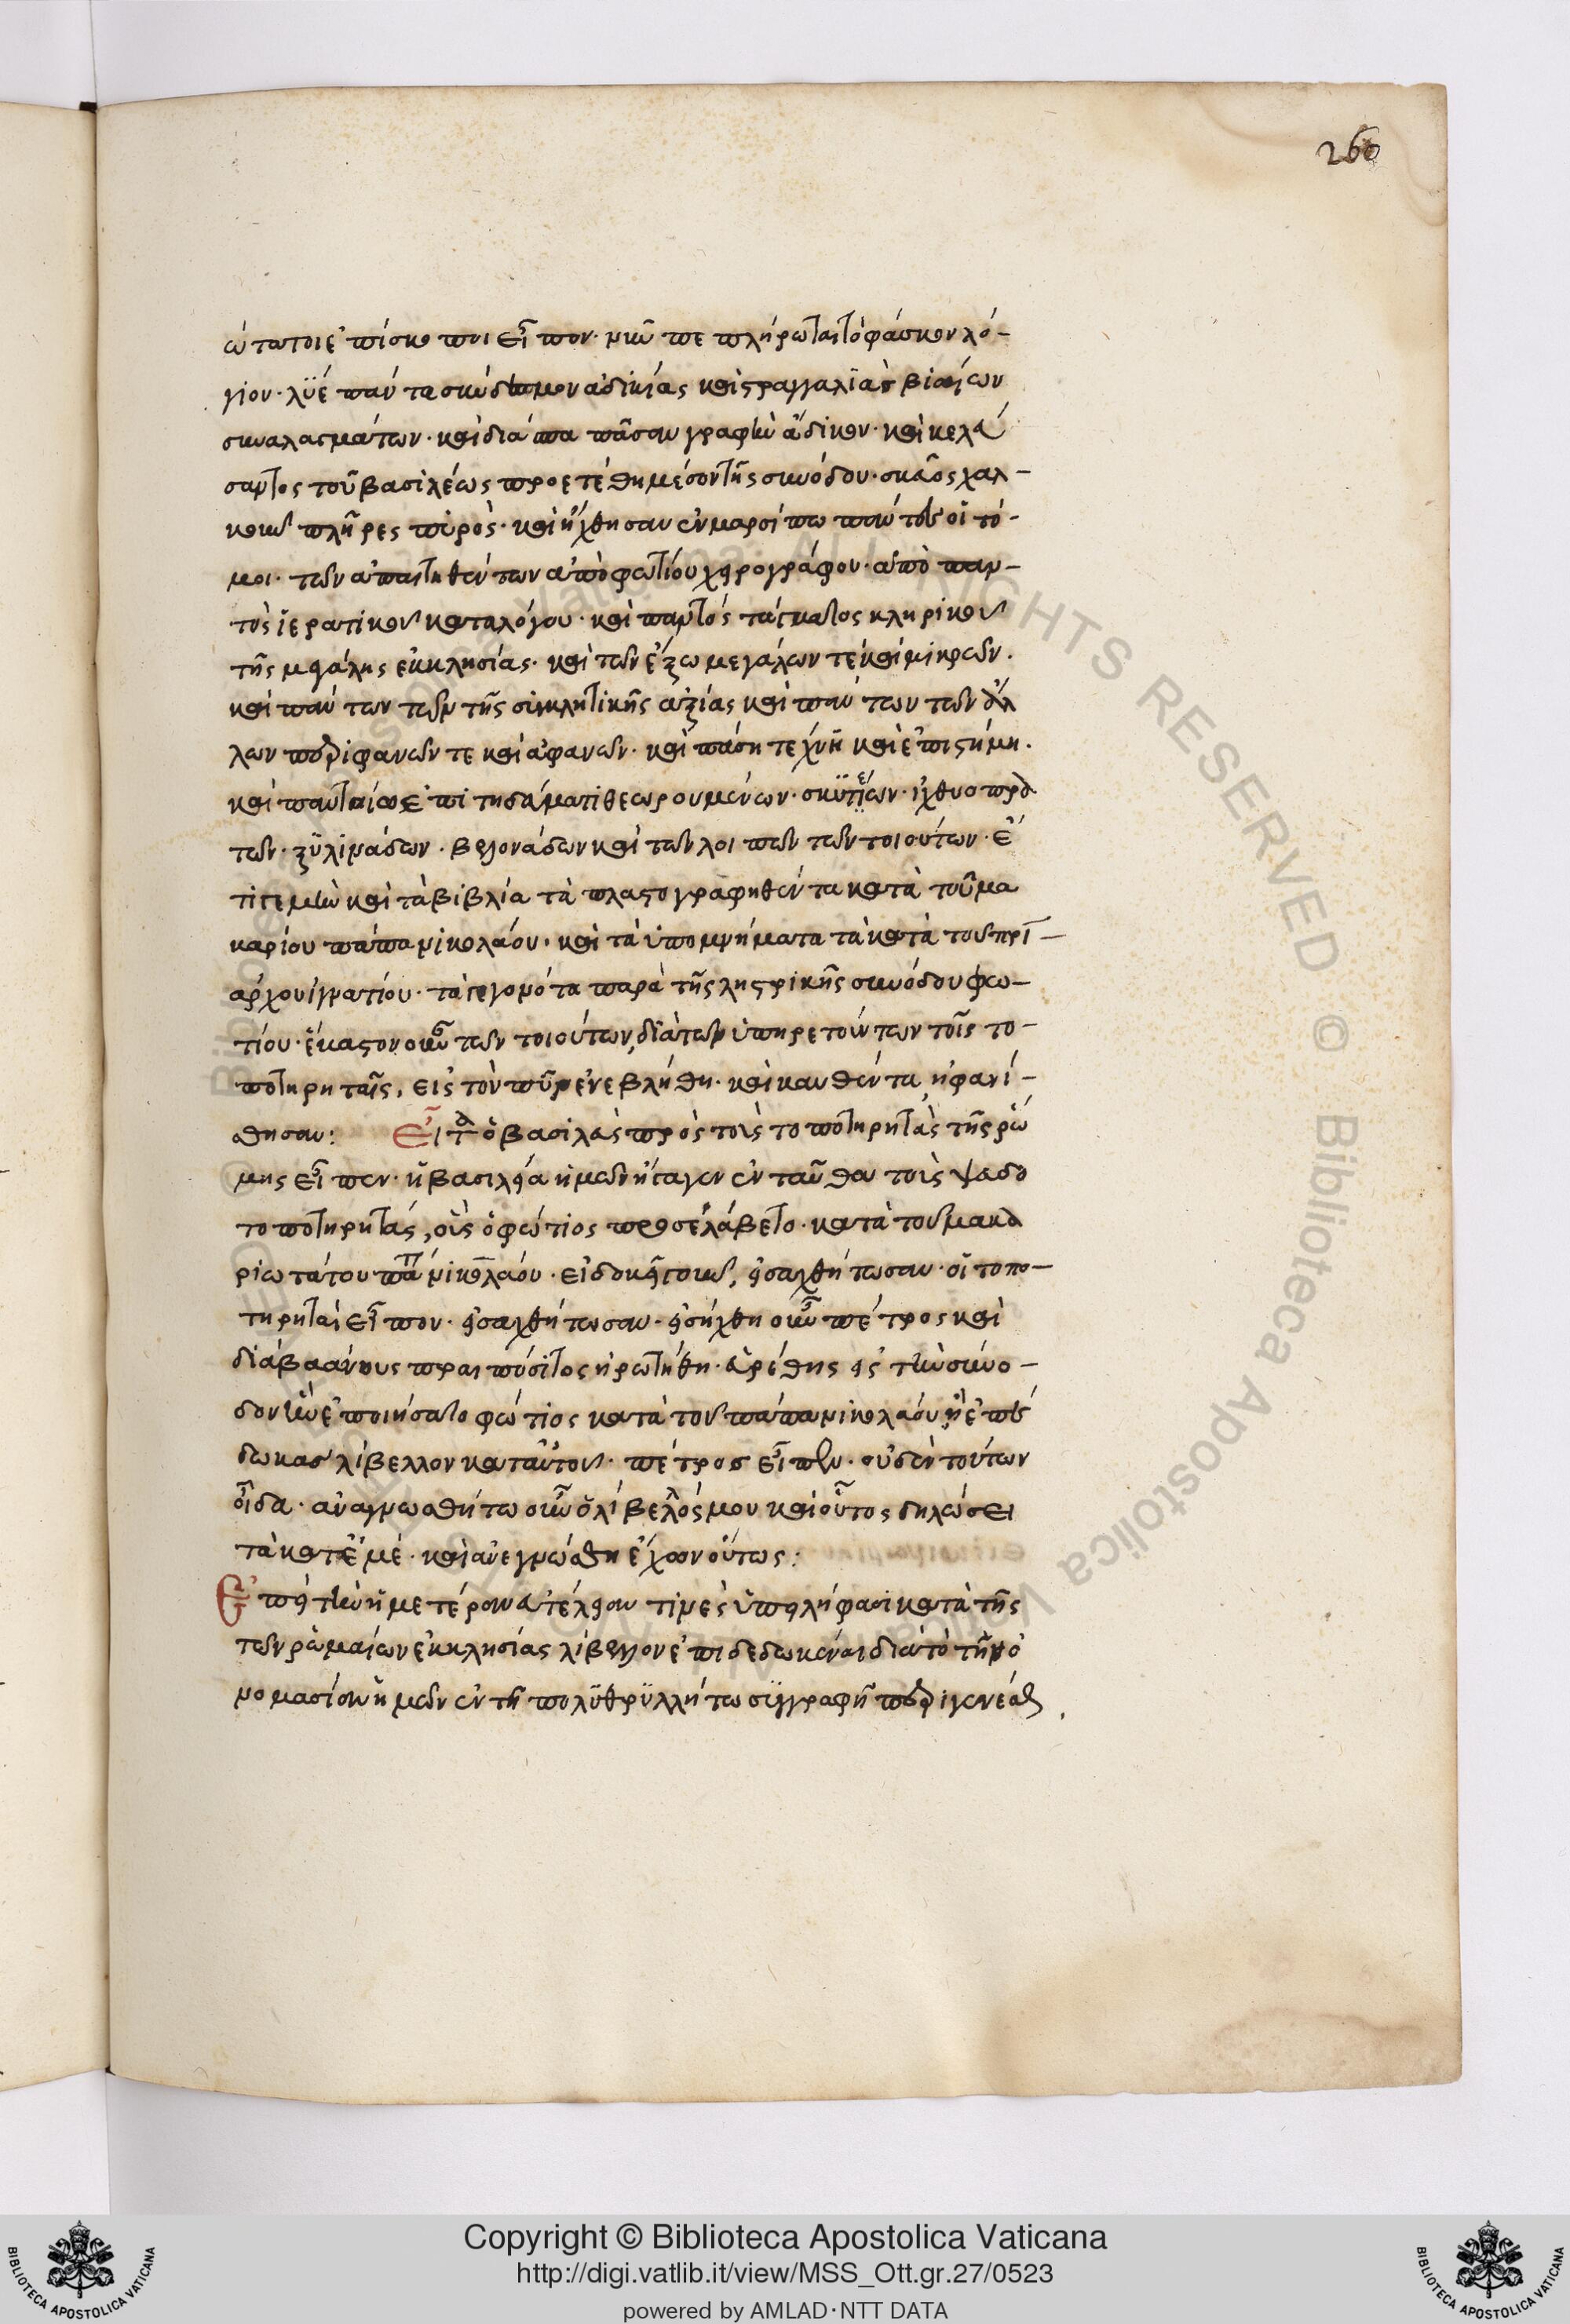 260
ώτατοι ἐπίσκοποι εἶπον· νῦν πεπλήρωται τὸ φάσκον λό-
γιον· λῦε πάντα σύνδεσμον ἀδικίας καὶ στραγγαλιὰς βιαίων
συναλαγμάτων· καὶ διάσπα πᾶσαν γραφὴν ἄδικον· καὶ κελεύ
σαντος τοῦ βασιλέως προετέθη μέσον τῆς συνόδου· σκεῦος χαλ-
κοῦν πλῆρες πυρὸς· καὶ ἤχθησαν ἐν μαρσίπω πάντες οἱ τό-
μοι· τῶν ἀπαιτηθέντων ἀπὸ φωτίου χειρογράφου· ἀπὸ παν-
τὸς ἱερατικοῦ καταλόγου· καὶ παντὸς τάγματος κληρικοῦ
τῆς μεγάλης ἐκκλησίας· καὶ τῶν ἔξω μεγάλων τὲ καὶ μικρῶν·
καὶ πάντων τῶν τῆς συγκλητικῆς ἀξίας καὶ πάντων τῶν ἄλ
λων περιφανῶν τε καὶ ἀφανῶν· καὶ πάση τέχνη καὶ ἐπιστήμη·
καὶ παντοίω ἐπιτηδεύματι θεωρουμένων· σκυτέων· ἰχθυοπρα
τῶν· ξυλινάδων· βελονάδων καὶ τῶν λοιπῶν τῶν τοιούτων· ἔ
τι γε μὴν καὶ τὰ βιβλία τὰ πλαστογραφηθέντα κατὰ τοῦ μα
καρίου πάπα νικολάου· καὶ τὰ ὑπομνήματα τὰ κατὰ τοῦ πρι-
αρχου ἰγνατίου· τὰ γεγονότα παρὰ τῆς ληστρικῆς συνόδου φω-
τίου· ἕκαστον οὖν τῶν τοιούτων, διὰ τῶν ὑπηρετούντων τοῖς το-
ποτηρηταῖς, εἰς τὸν πῦρ ἐνεβλήθη· καὶ καυθέντα, ἠφανί-
σθησαν: Εἶτα ὁ βασιλεὺς πρὸς τοὺς τοποτηρητὰς τῆς ῥώ
μης εἶπεν· ἡ βασιλεία ἡμῶν ἤγαγεν ἐνταῦθα τοὺς ψευδο
τοποτηρητάς, οὓς ὁ φώτιος προσελάβετο· κατὰ τοῦ μακα
ριωτάτου πάπ νικολάου· εἰ δοκεῖ γοῦν, εἰσαχθήτωσαν· οἱ τοπο-
τηρηταὶ εἶπον· εἰσαχθήτωσαν· εἰσήχθη οὖν πέτρος καὶ
διὰ βαάνους πραιποσίτος ἠρωτήθη· εὑρέθης εἰς τὴν σύνο-
δον ἣν ἐποιήσατο φώτιος κατὰ τοῦ πάπα νικολάου, ἢ ἐπε
δωκας λίβελλον κατ αὐτοῦ· πέτρος εἶπεν· οὐδὲν τούτων
οἶδα· ἀναγνωσθήτω οὖν ὁ λίβελλός μου καὶ οὗτος δηλώσει
τὰ κατ ἐμέ· καὶ ἀνεγνώσθη ἔχων οὕτως:
Ἐπεὶ τὴν ἡμετέραν εὐτέλειαν τινὲς ὑπειλήφασι κατὰ τῆς
τῶν ῥωμαίων ἐκκλησίας λίβελλον ἐπιδεδωκέναι διὰ τὸ τὴν ὀ
νομασίαν ἡμῶν ἐν τῆ πολυθρυλλήτω συγγραφῆ περιγενέσθ
Copyright © Biblioteca Apostolica Vaticana
http://digi.vatlib.it/view/MSS_Ott.gr.27/0523
powered by AMLAD·NTT DATA
BIBLIOTECA APOSTOLICA VATICANA
BIBLIOTECA APOSTOLICA VATICANA